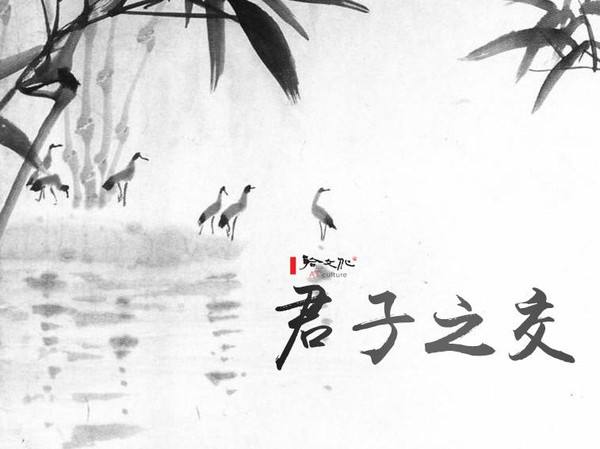 文化
culture
君子之交